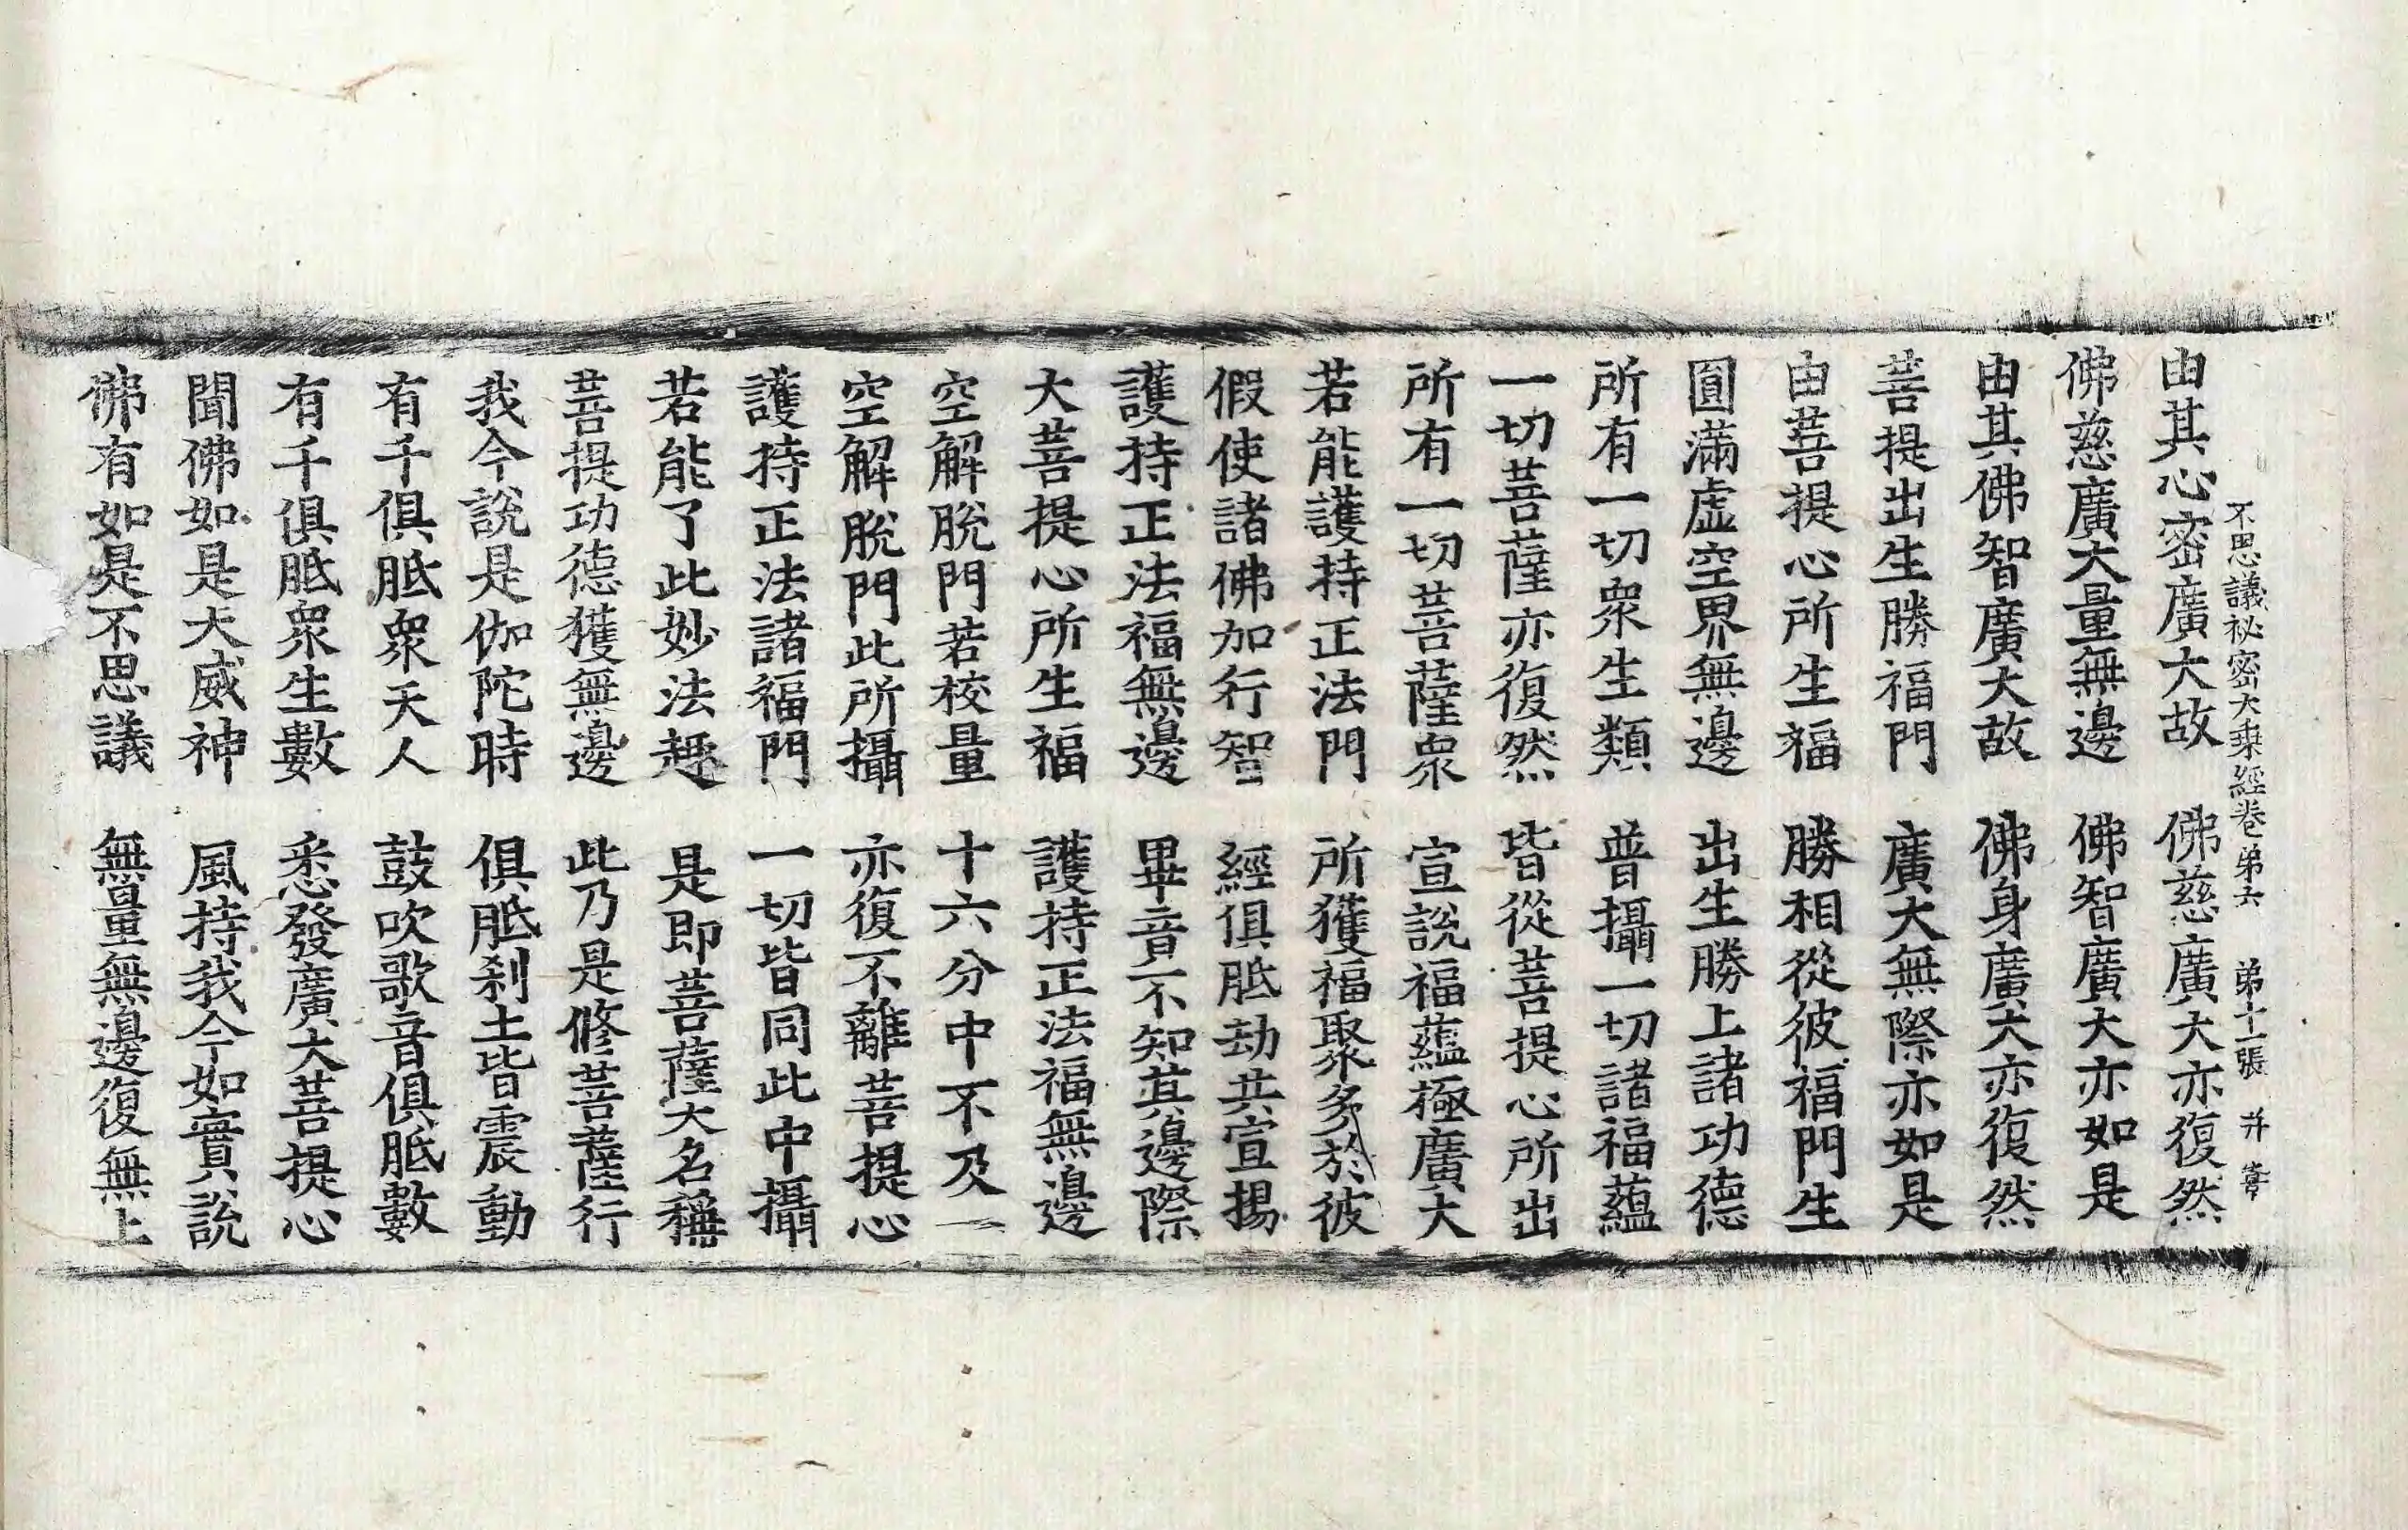 不思議祕密大乗經卷苐六 苐十二張 幷
由其心密廣大故 佛慈廣大亦復然
佛慈廣大量無邊 佛智廣大亦如是
由其佛智廣大故 佛身廣大亦復然
菩提出生勝福門 廣大無際亦如是
由菩提心所生福 勝相從彼福門生
圓滿虛空界無邊 出生勝上諸功德
所有一切衆生類 普攝一切諸福蘊
一切菩薩亦復然 皆從菩提心所出
所有一切菩薩衆 宣說福蘊極廣大
若能護持正法門 所獲福聚多於彼
假使諸佛加行智 經俱胝劫共宣揚
護持正法福無邊 畢音不知其邊際
大菩提心所生福 護持正法福無邊
空解脫門若校量 十六分中不及一
空解脫門此所攝 亦復不離菩提心
護持正法諸福門 一切皆同此中攝
若能了此妙法趣 是即菩薩大名稱
菩提功德獲無邊 此乃是修菩薩行
我今說是伽陀時 俱胝刹土皆震動
有千俱胝衆天人 鼓吹歌音俱胝數
有千俱胝衆生數 悉發廣大菩提心
聞佛如是大威神 風持我今如實說
佛有如是不思議 無量無邊復無上